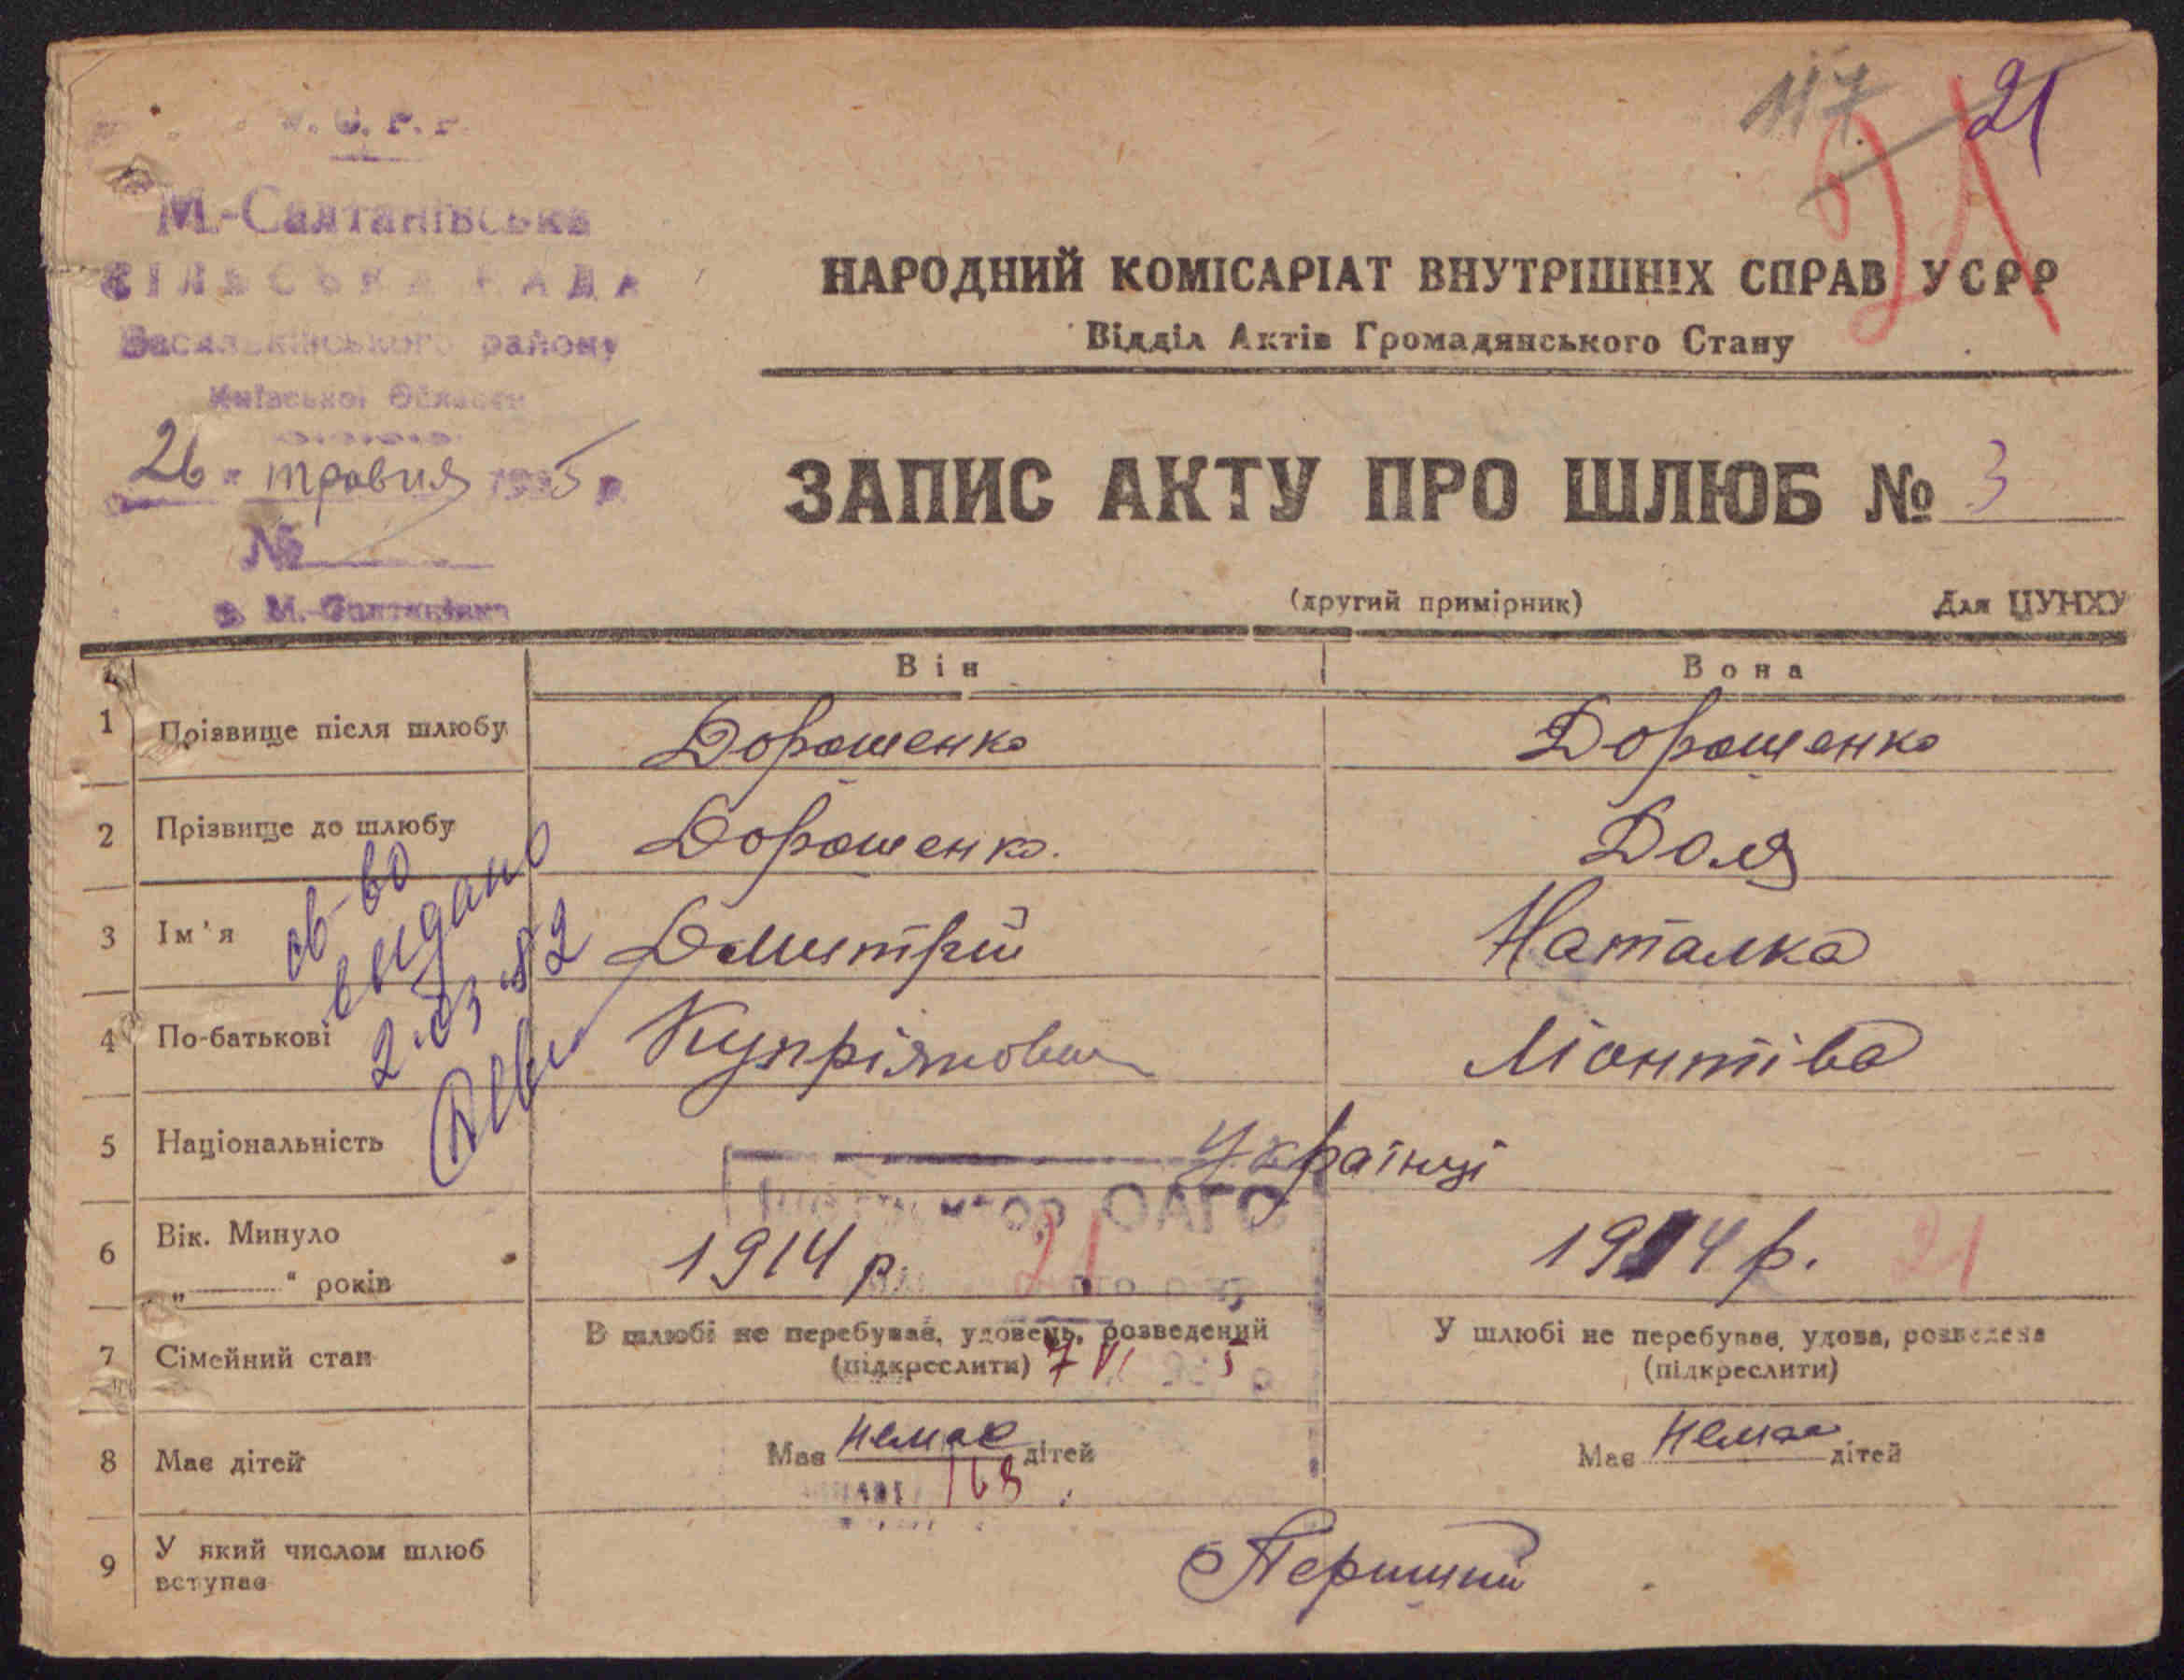 У.С.Р.Р.
М.-Салтанівська
СІЛЬСЬКА РАДА
Васильківського району
Київської Області
26 " травня 1935 р.
№
с. М.-Салтанівка
117 21
21
НАРОДНИЙ КОМІСАРІАТ ВНУТРІШНІХ СПРАВ УСРР
Відділ Актів Громадянського Стану
ЗАПИС АКТУ ПРО ШЛЮБ № 3
(другий примірник) Для ЦУНХУ
Він Вона
1 Прізвище після шлюбу Дорошенко Дорошенко
2 Прізвище до шлюбу Дорошенко. Доля
3 Ім'я Дмитрий Наталка
4 По-батькові Купріянович Ліонтіва
св-во
видано
2.03.82
5 Національність Українці
Інспектор ОАГС
6 Вік. Минуло 1914 р. 21 1914 р. 21
„ “ років
7 Сімейний стан В шлюбі не перебував, удовець, розведений У шлюбі не перебувае, удова, розведена
(підкреслити) 7 VI 1935 р (підкреслити)
8 Має дітей Має немає дітей Має немає дітей
168
9 У який числом шлюб Перший
вступає